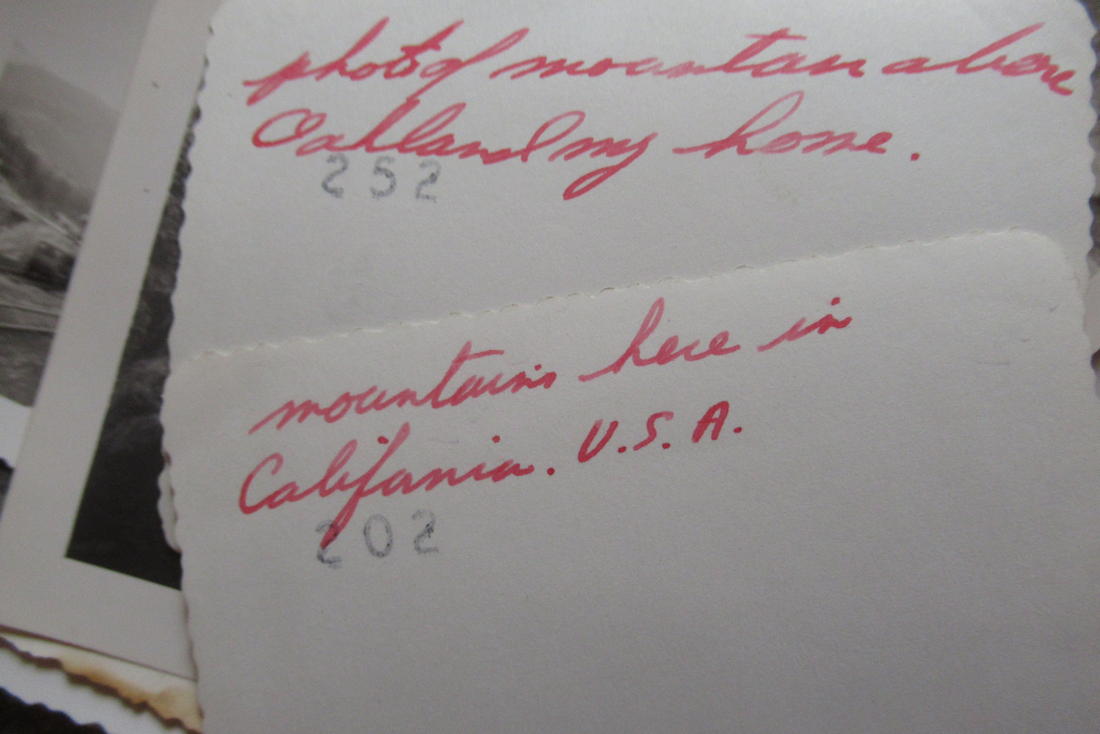 photo of mountain above
Oakland my home.
252
mountains here in
California. U.S.A.
202